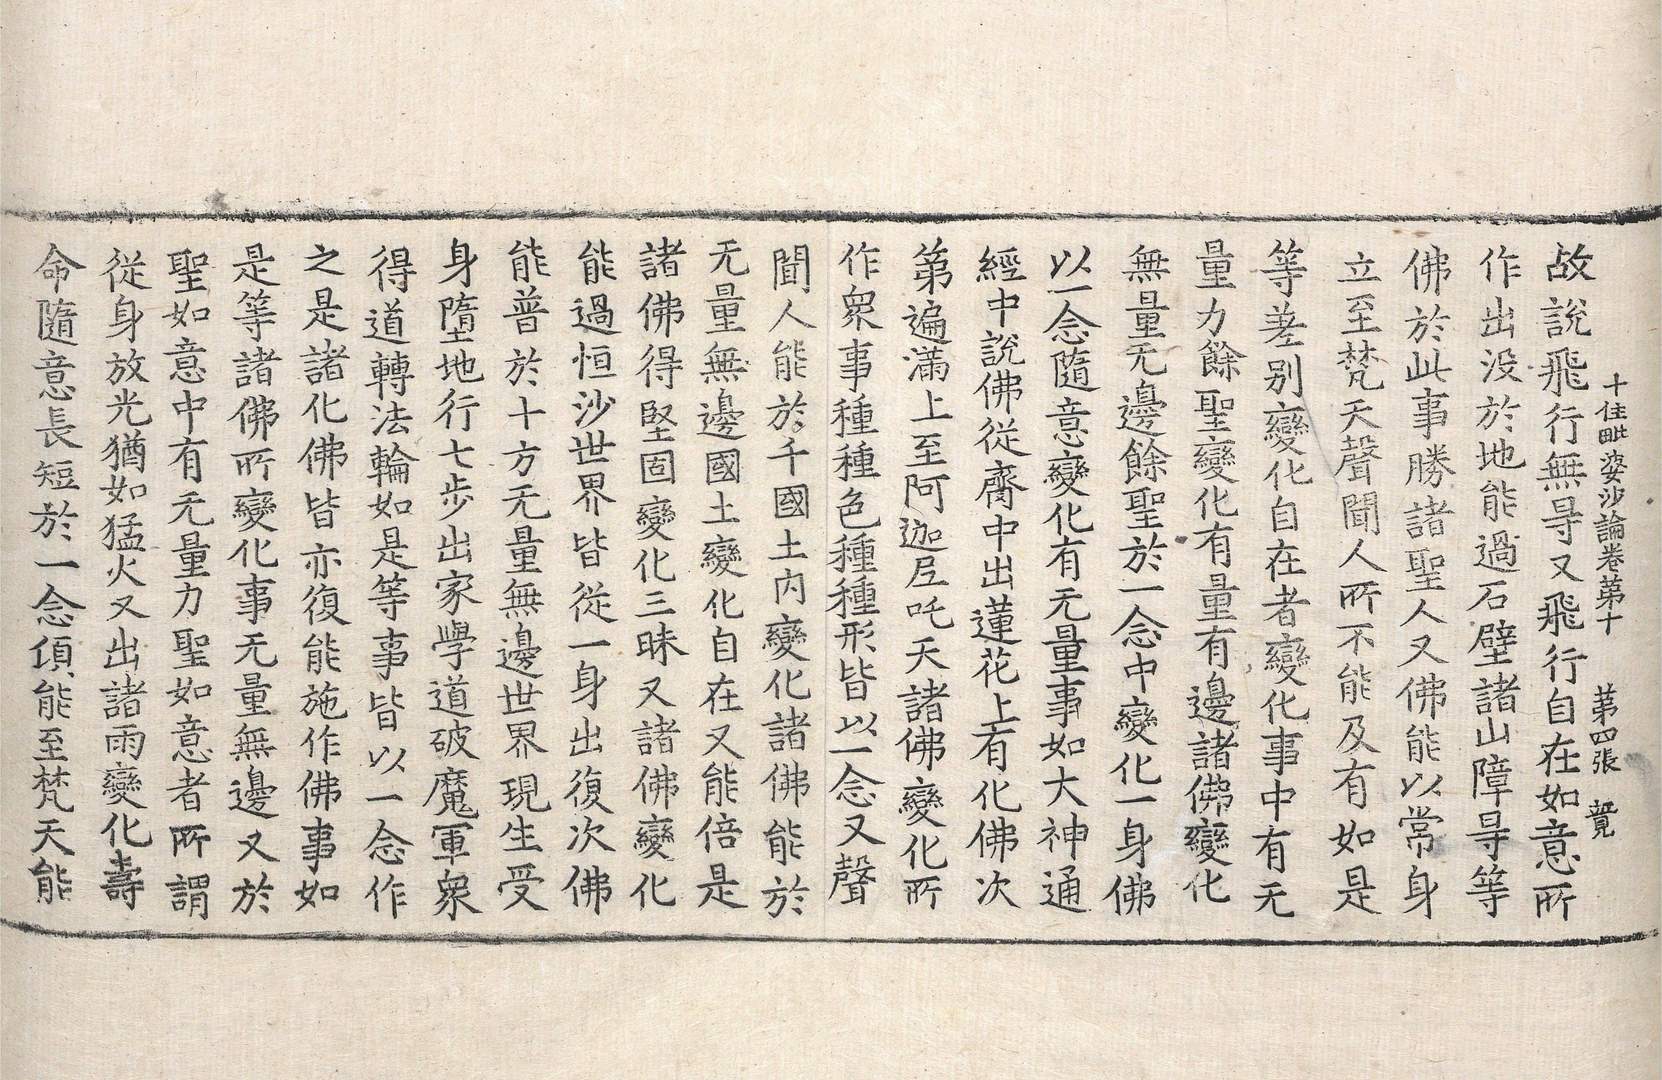 十住毗婆沙論卷第十 第四張 覺
故說飛行無㝵又飛行自在如意所
作出没於地能過石壁諸山障㝵等
佛於此事勝諸聖人又佛能以常身
立至梵天聲聞人所不能及有如是
等差别變化自在者變化事中有无
量力餘聖變化有量有邊諸佛變化
無量无邊餘聖於一念中變化一身佛
以一念隨意變化有无量事如大神通
經中說佛從齊中出蓮花上有化佛次
第遍滿上至阿迦尼吒天諸佛變化所
作衆事種種色種種形皆以一念又聲
聞人能於千國土內變化諸佛能於
无量無邊國土變化自在又能倍是
諸佛得堅固變化三昧又諸佛變化
能過恒沙世界皆從一身出復次佛
能普於十方无量無邊世界現生受
身墮地行七步出家學道破魔軍衆
得道轉法輪如是等事皆以一念作
之是諸化佛皆亦復能施作佛事如
是等諸佛所變化事无量無邊又於
聖如意中有无量力聖如意者所謂
從身放光猶如猛火又出諸雨變化壽
命隨意長短於一念頃能至梵天能